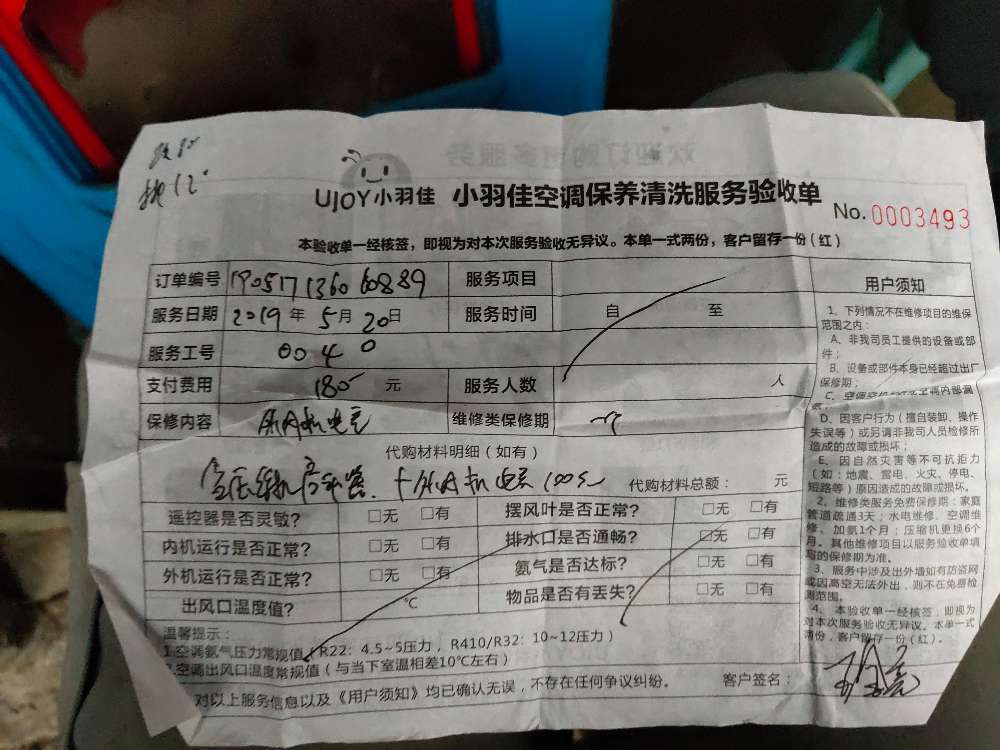 UJOY小羽佳 小羽佳空调保养清洗服务验收单
No. 0003493
本验收单一经核签，即视为对本次服务验收无异议。本单一式两份，客户留存一份（红）
订单编号 190517136060889 服务项目
服务日期 2019 年 5 月 20 日 服务时间 自 至
服务工号 0040
支付费用 180 元 服务人数 人
保修内容 维修类保修期 一个
代购材料明细（如有）
代购材料总额： 元
遥控器是否灵敏? □无 □有 摆风叶是否正常? □无 □有
内机运行是否正常? □无 □有 排水口是否通畅? □无 □有
外机运行是否正常? □无 □有 氨气是否达标? □无 □有
出风口温度值? ℃ 物品是否有丢失? □无 □有
温馨提示：
1.空调氨气压力常规值（R22：4.5~5压力，R410/R32：10~12压力）
2.空调出风口温度常规值（与当下室温相差10℃左右）
对以上服务信息以及《用户须知》均已确认无误，不存在任何争议纠纷。 客户签名：
用户须知
1、下列情况不在维修项目的维保
范围之内：
A、非我司员工提供的设备或部
件；
B、设备或部件本身已经超过出厂
保修期；
D、因客户行为（擅自装卸、操作
失误等）或另请非我司人员检修所
造成的故障或损坏；
E、因自然灾害等不可抗拒力
（如：地震、雷电、火灾、停电、
短路等）原因造成的故障或损坏。
2、维修类服务免费保修期：家庭
管道疏通3天；水电维修、空调维
修、加氨1个月；压缩机更换6个
月。其他维修项目以服务验收单填
写的保修期为准。
3、服务中涉及出外墙如有防盗网
或因高空无法外出，则不在免费检
测范围。
4、本验收单一经核签，即视为
对本次服务验收无异议。本单一式
两份，客户留存一份（红）。